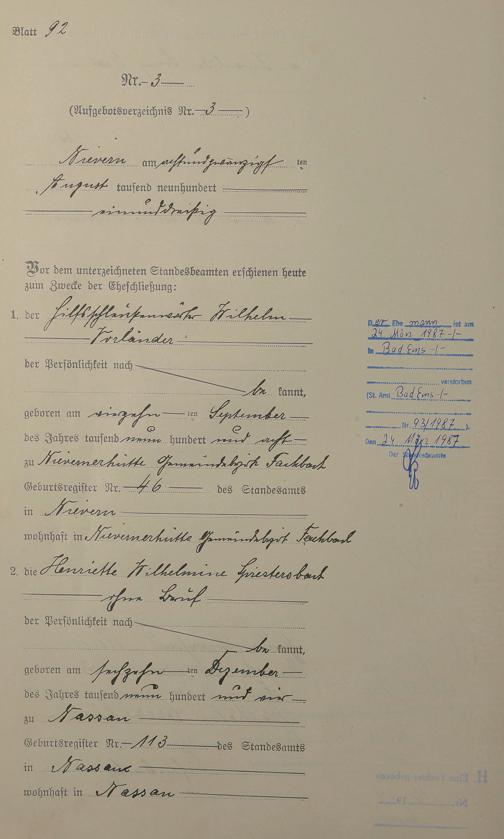 Blatt 92
Nr. 3
(Aufgebotsverzeichnis Nr. 3)
Nievern am achtundzwanzigsten
August tausend neunhundert
einunddreißig
Vor dem unterzeichneten Standesbeamten erschienen heute
zum Zwecke der Eheschließung:
1. der Hilfsschleusenwärter Wilhelm
Vorländer
der Persönlichkeit nach
bekannt,
geboren am vierzehnten September
des Jahres tausend neun hundert und acht
zu Nievernerhütte Gemeindebezirk Fachbach
Geburtsregister Nr. 46 des Standesamts
in Nievern
wohnhaft in Nievernerhütte Gemeindebezirk Fachbach
2. die Henriette Wilhelmine Spiestersbach
ohne Beruf
der Persönlichkeit nach
bekannt,
geboren am sechzehnten Dezember
des Jahres tausend neun hundert und vier
zu Nassau
Geburtsregister Nr. 113 des Standesamts
in Nassau
wohnhaft in Nassau
Der Ehemann ist am
24. März 1987
in Bad Ems
verstorben
(St. Amt Bad Ems
Nr. 93/1987).
Den 24. März 1987
Der Standesbeamte